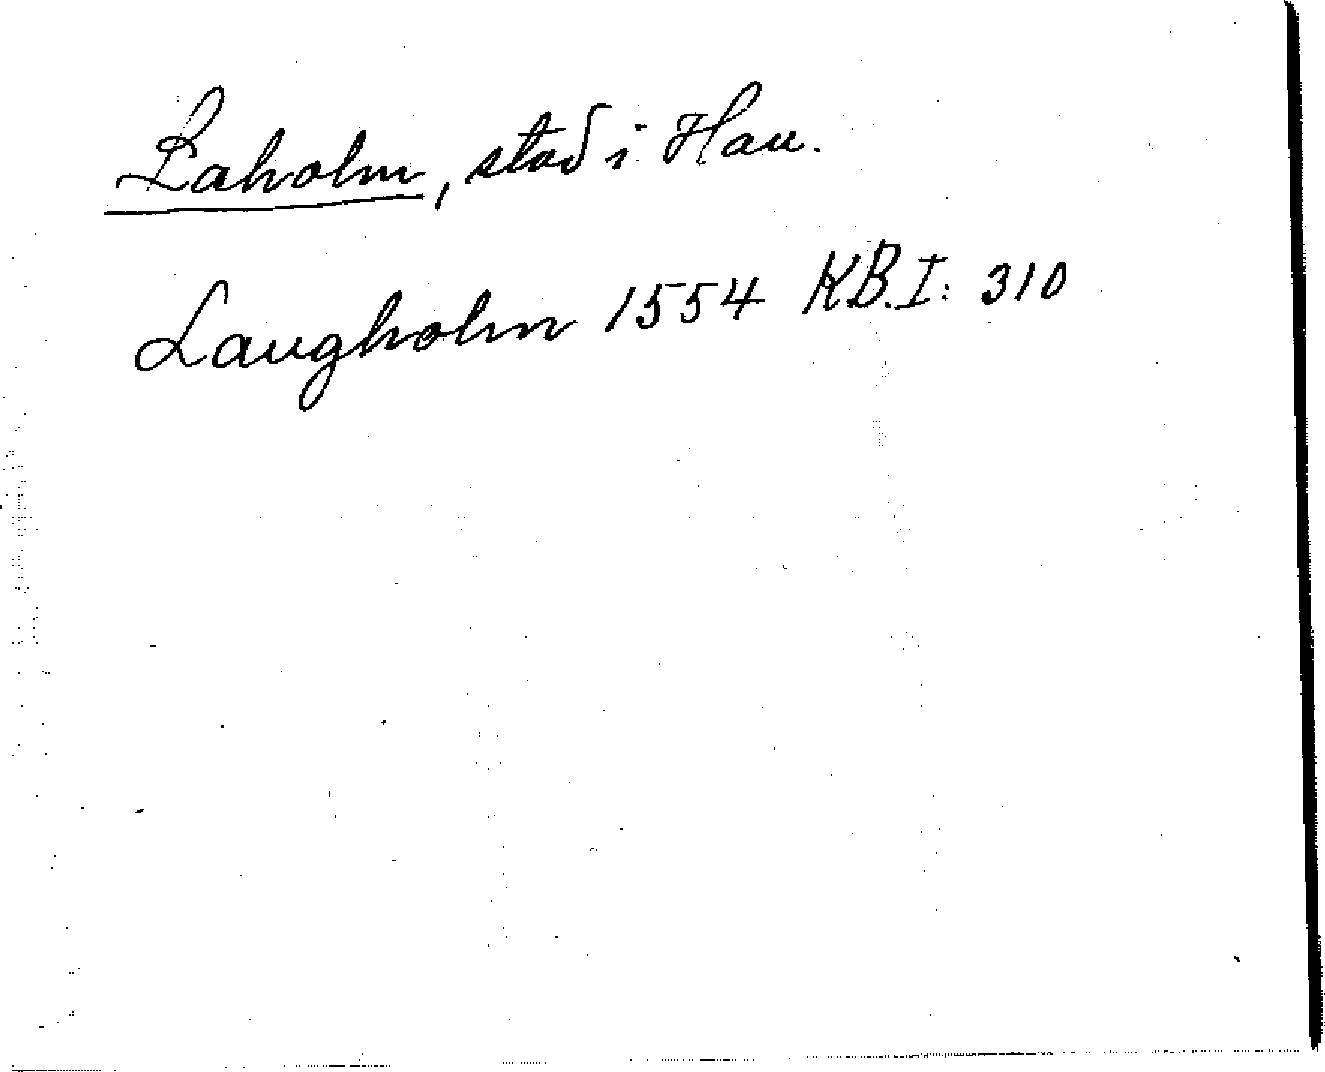 Laholm, stad i Hau.
Laugholm 1554 KB.I: 310